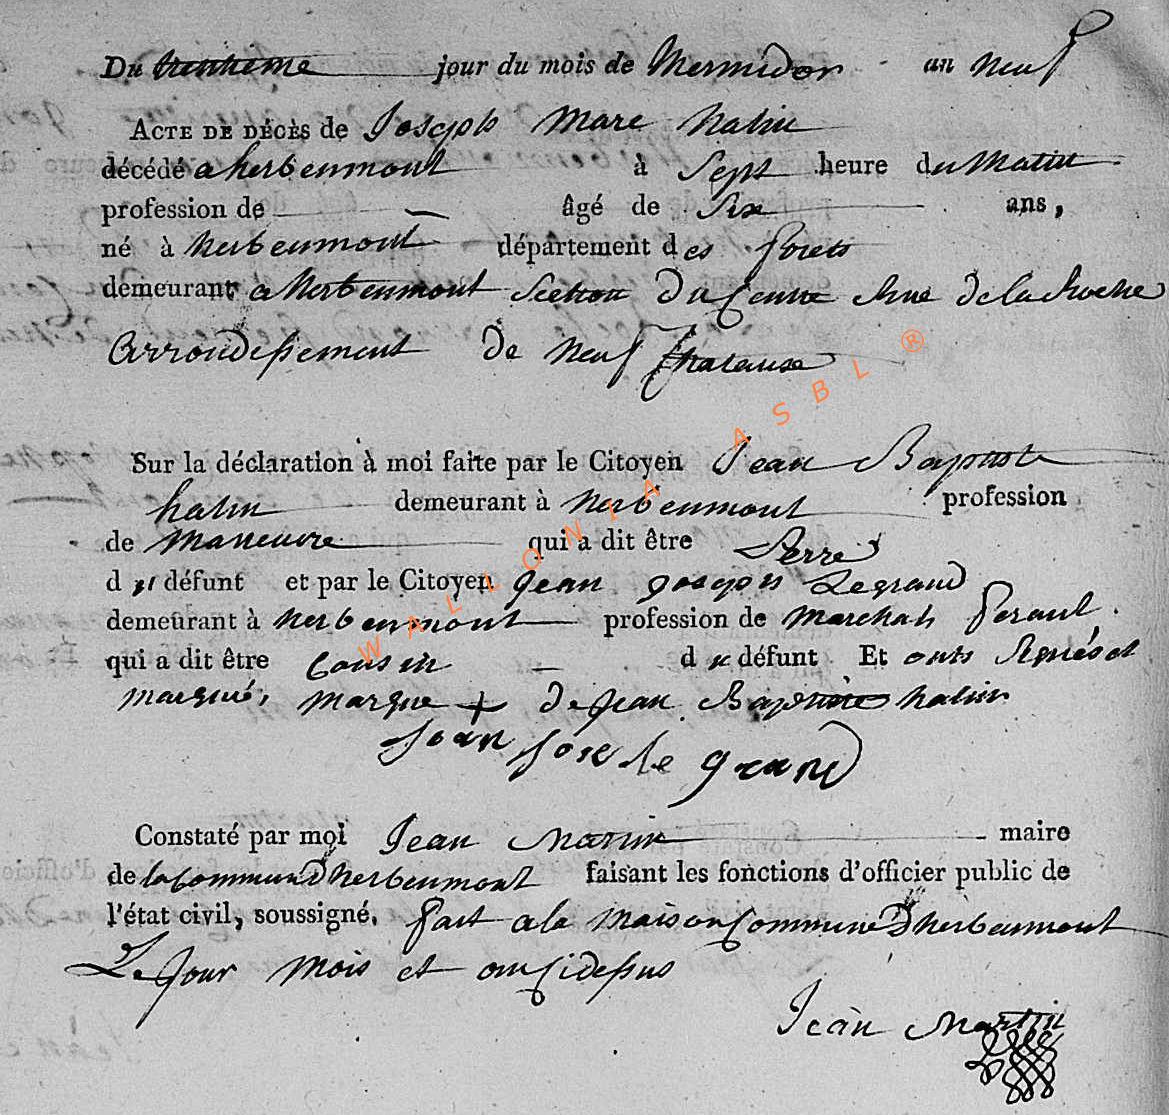 Du trentieme jour du mois de Thermidor an neuf
ACTE DE DÉCÈS de Joseph Marc halin
décédé a herbeumont à Sept heure du Matin
profession de âgé de Six ans,
né à herbeumont département des forets
demeurant a herbeumont Section Du Centre Rue de la Roche
arrondissement de neuf Chateaux
Sur la déclaration à moi faite par le Citoyen Jean Baptiste
halin demeurant à herbeumont profession
de Maneuvre qui a dit être Perre
du défunt et par le Citoyen Jean Joseph Legrand
demeurant à herbeumont profession de Marchah feraul
qui a dit être Cousin du défunt Et onts Signés et
marqué, marque + de Jean Baptiste halin
Joan Jose le grand
Constaté par moi Jean Martin maire
de la Commun d'herbeumont faisant les fonctions d'officier public de
l'état civil, soussigné. fait a la Maison Commune D'herbeumont
Le Jour Mois et an Cidessus
Jean Martin
WALLONIA ASBL ®